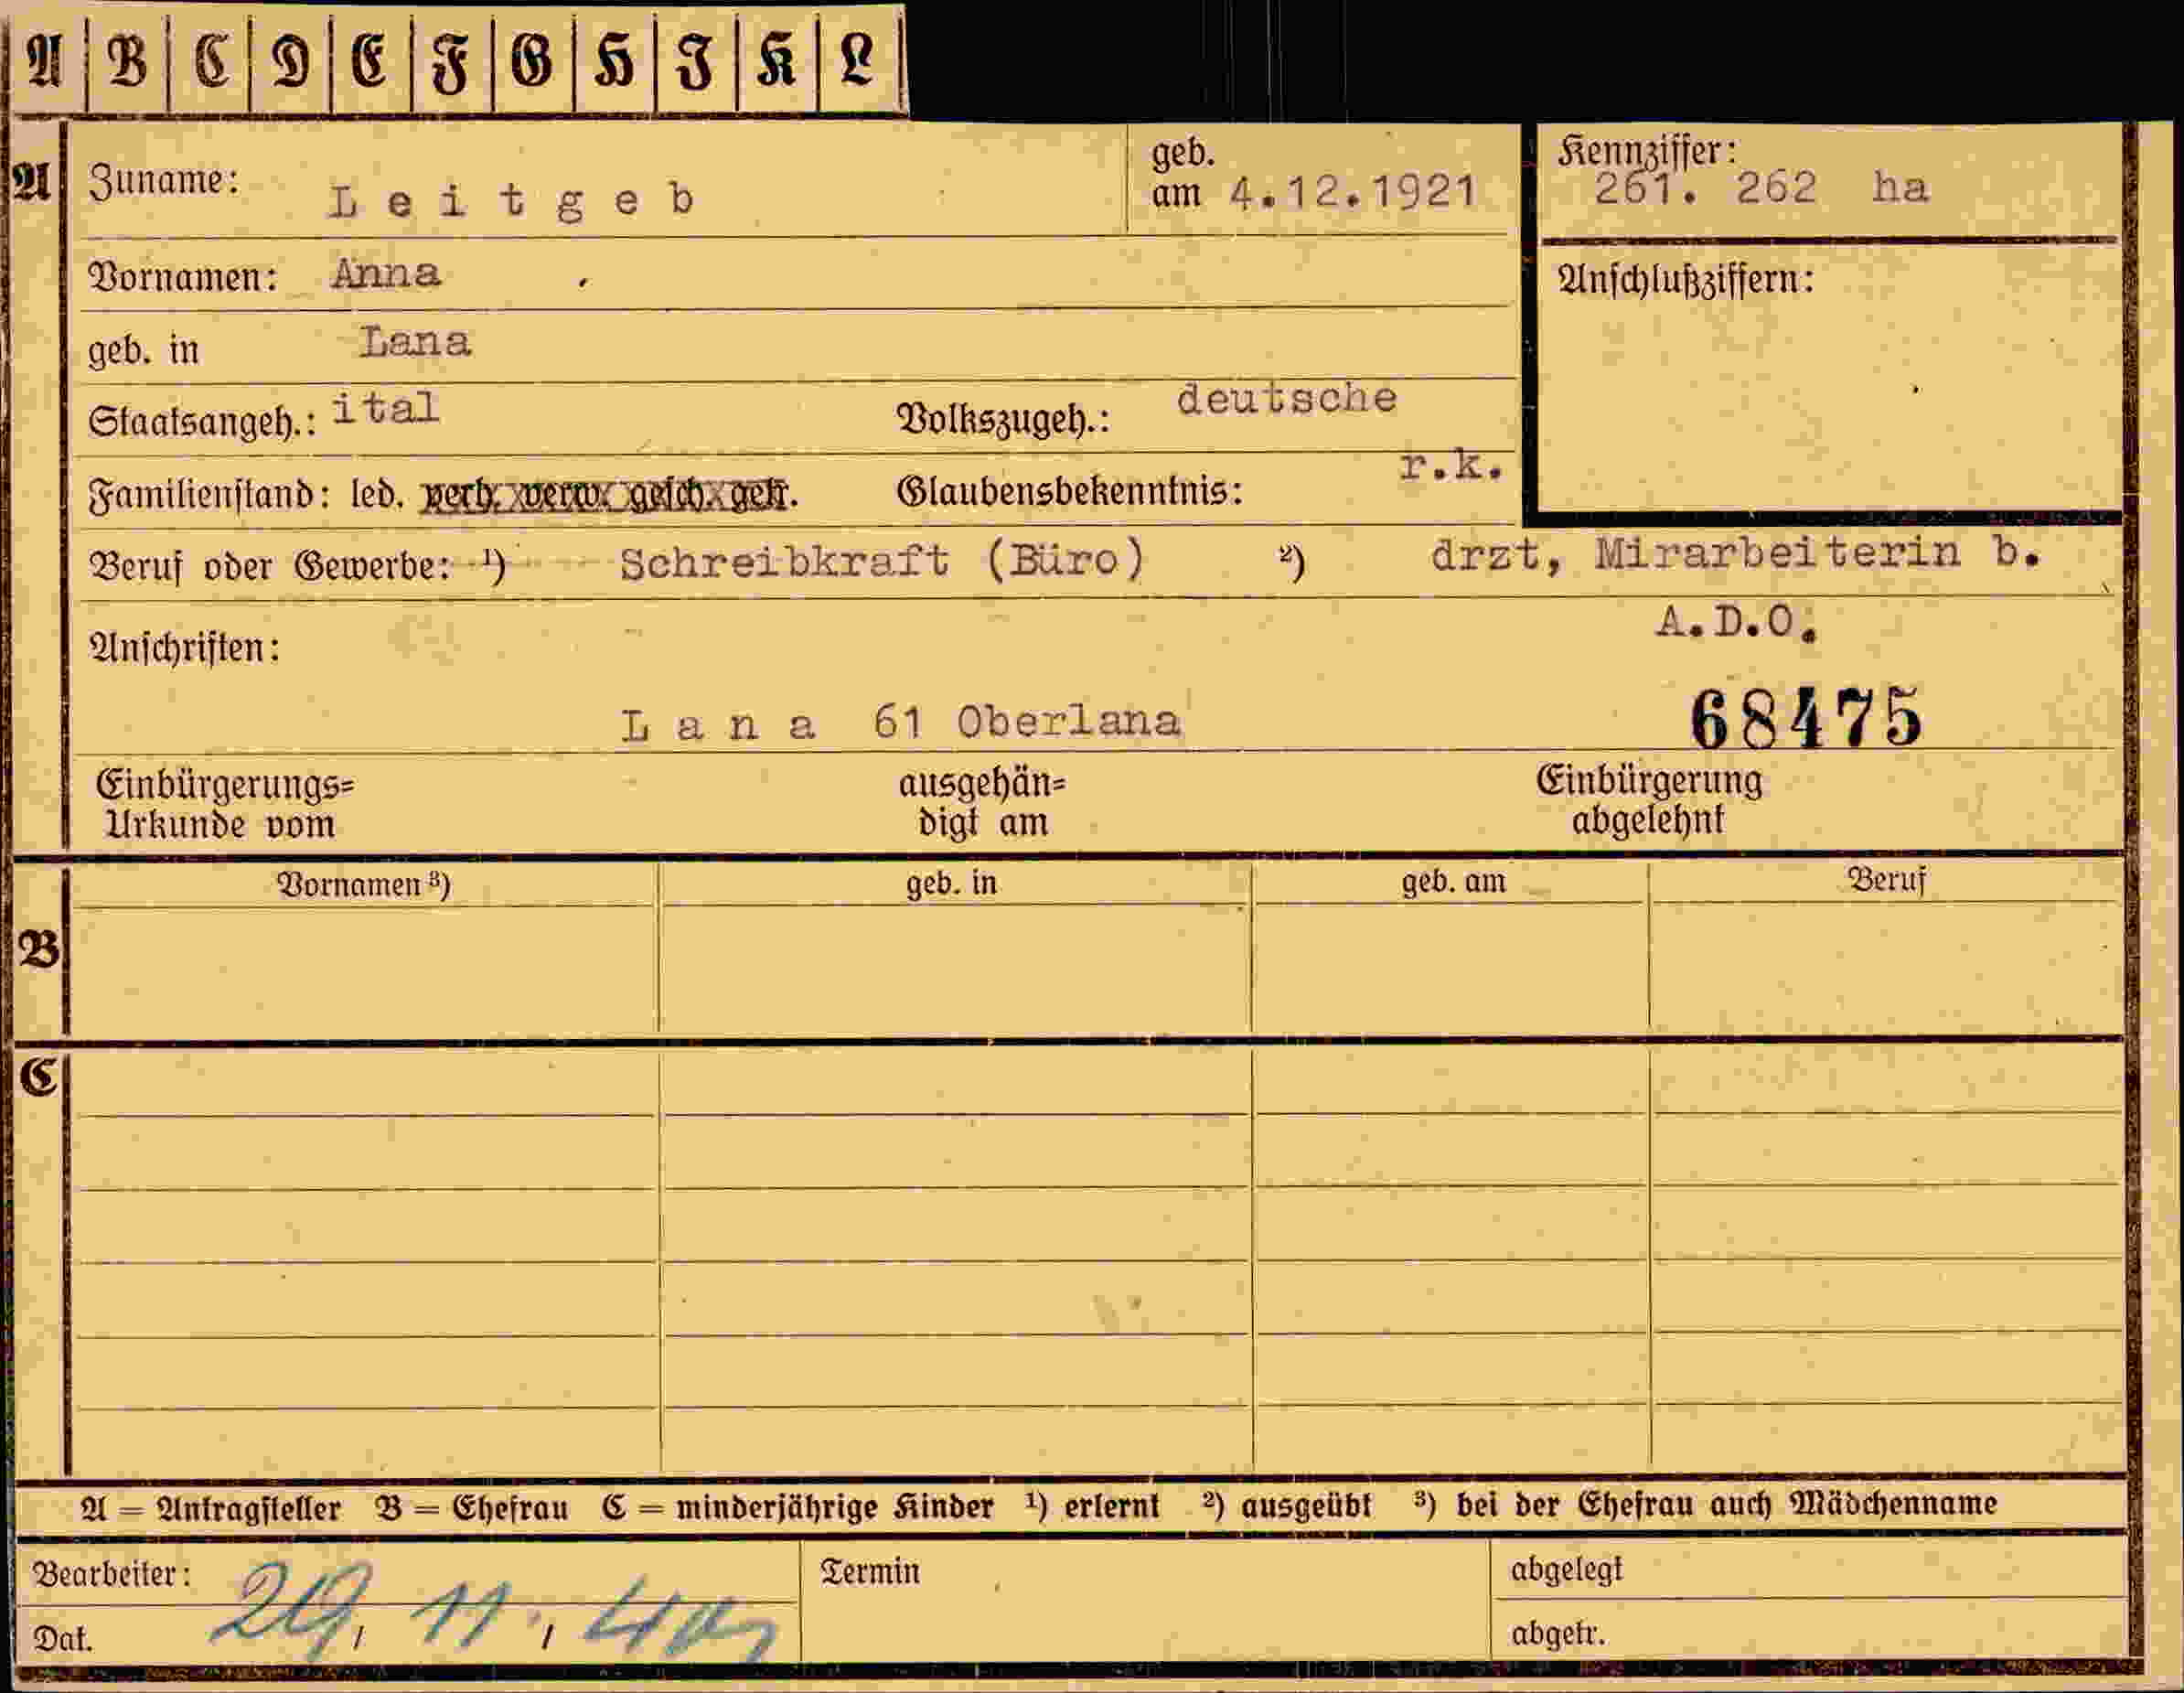 A B C D E F G H J K L
A
Zuname: Leitgeb
geb.
am 4.12.1921
Kennziffer:
261. 262 ha
Vornamen: Anna
Anschlußziffern:
geb. in Lana
Staatsangeh.: ital Volkszugeh.: deutsche
Familienstand: led. verh. verw. gesch. getr. Glaubensbekenntnis: r.k.
Beruf oder Gewerbe: ¹) Schreibkraft (Büro) ²) drzt, Mirarbeiterin b.
A.D.O.
Anschriften:
Lana 61 Oberlana 68475
Einbürgerungs=
Urkunde vom
ausgehän=
digt am
Einbürgerung
abgelehnt
B
Vornamen ³) geb. in geb. am Beruf
C
A = Antragsteller B = Ehefrau C = minderjährige Kinder ¹) erlernt ²) ausgeübt ³) bei der Ehefrau auch Mädchenname
Bearbeiter: Termin abgelegt
Dat. 29, 11, abgetr.